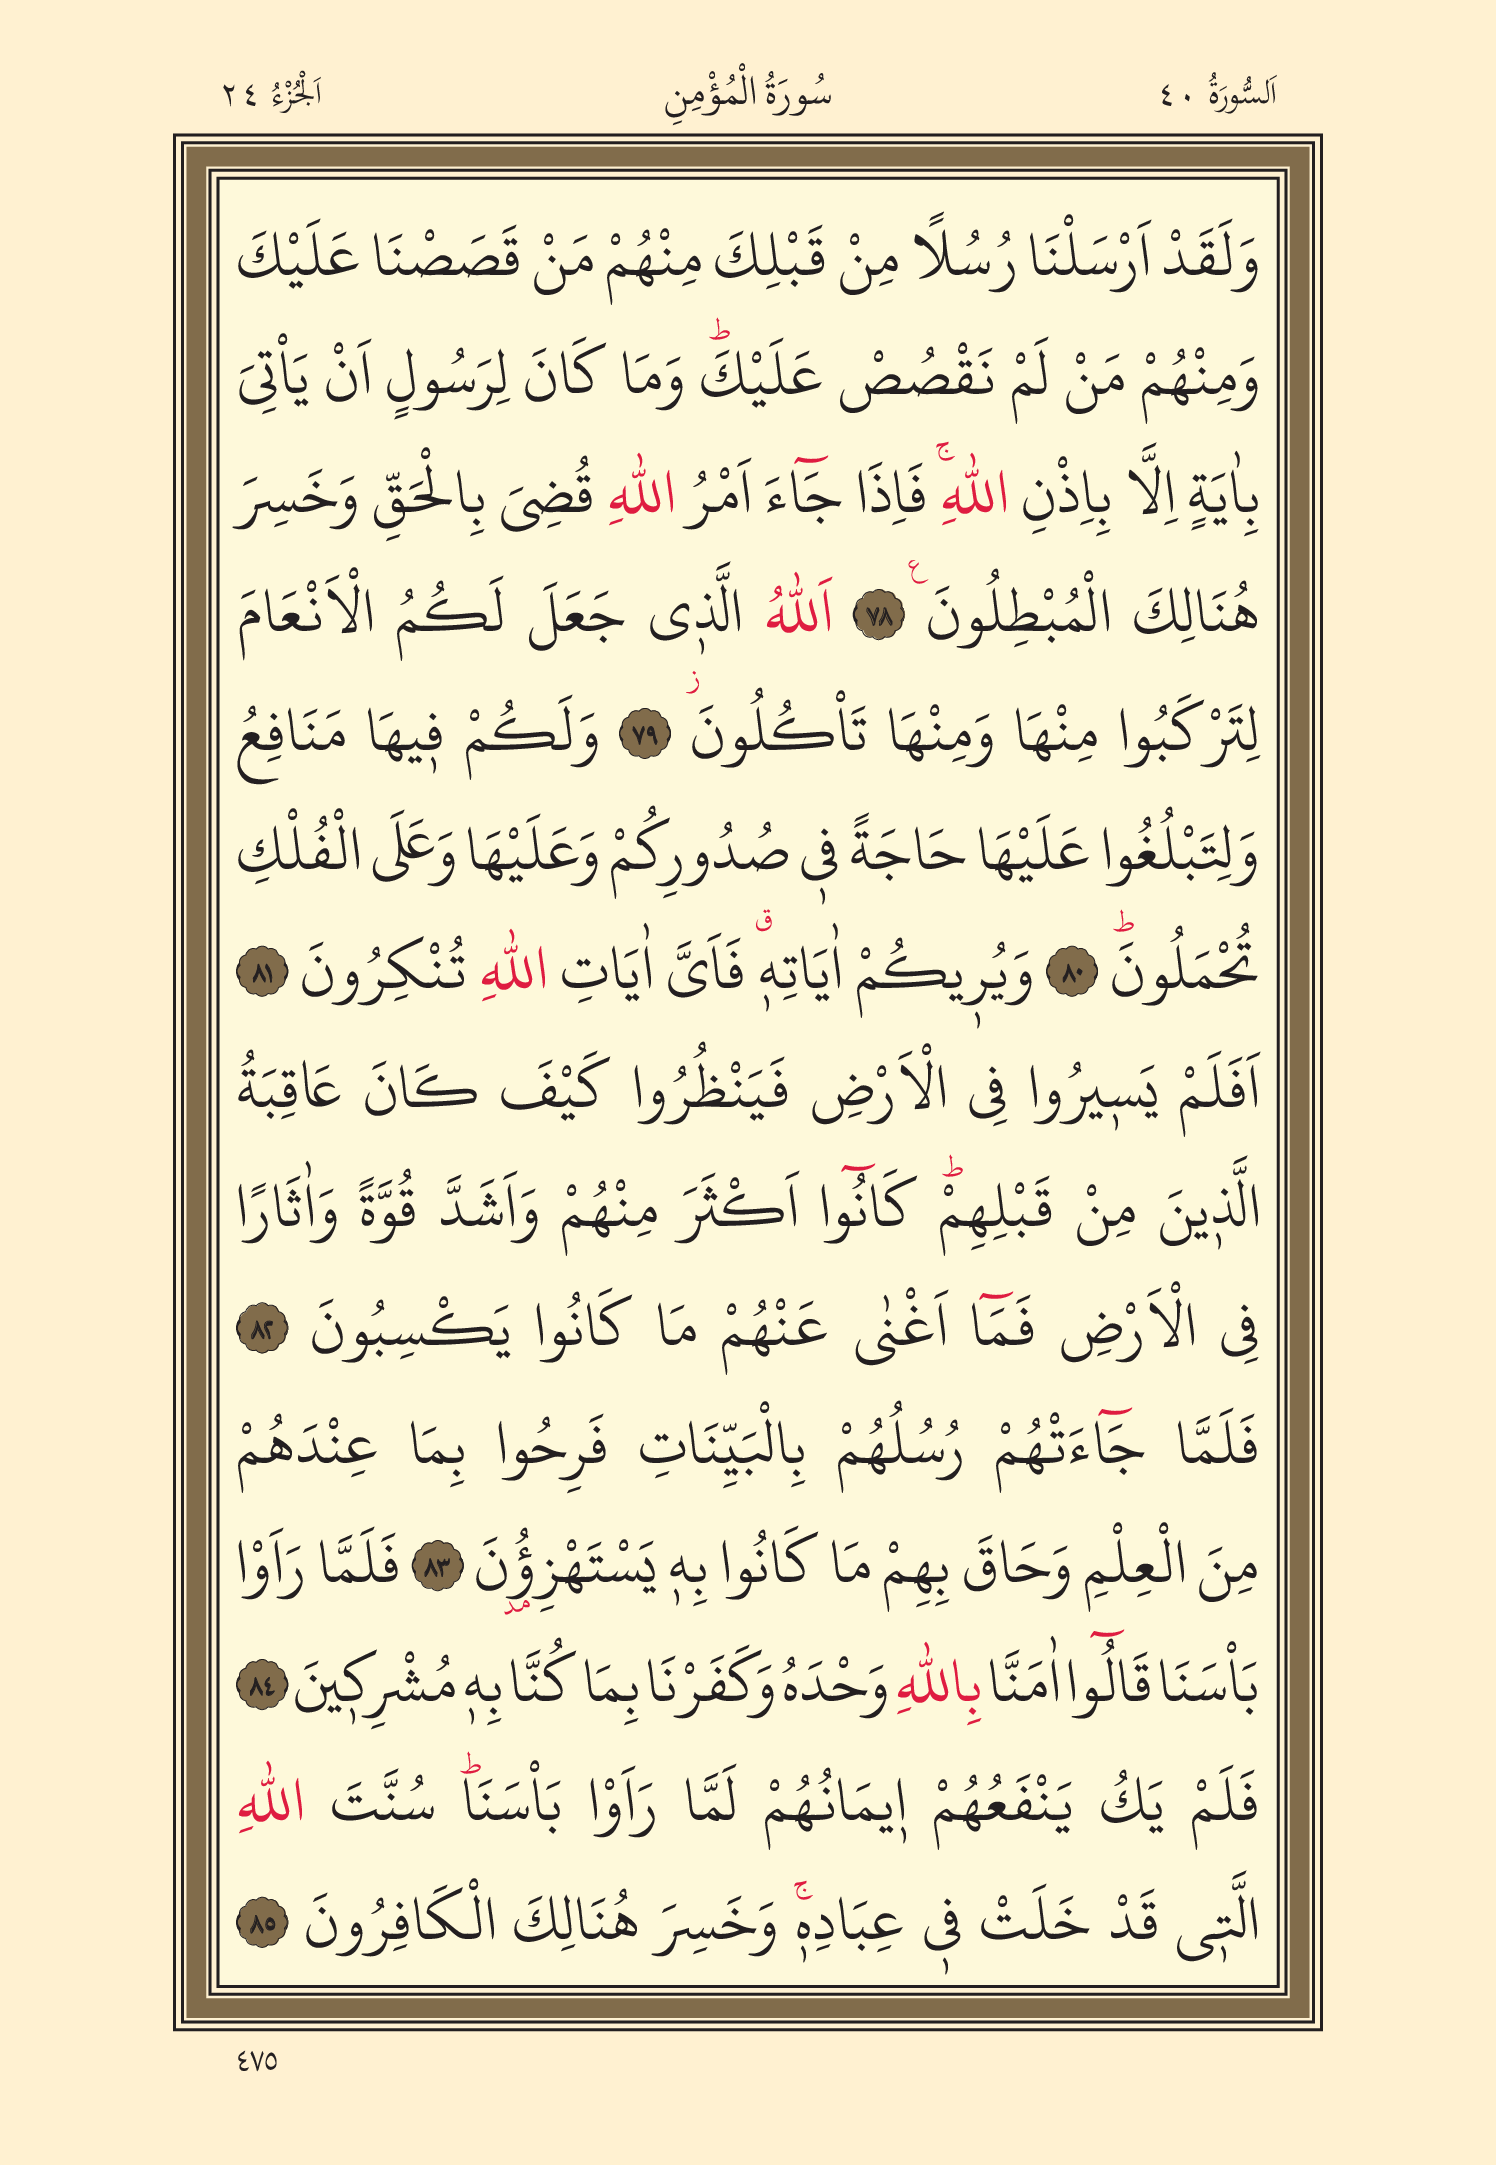 اَلسُّورَةُ ٤٠ سُورَةُ الْمُؤْمِنِ اَلْجُزْءُ ٢٤
وَلَقَدْ اَرْسَلْنَا رُسُلًا مِنْ قَبْلِكَ مِنْهُمْ مَنْ قَصَصْنَا عَلَيْكَ
وَمِنْهُمْ مَنْ لَمْ نَقْصُصْ عَلَيْكَۜ وَمَا كَانَ لِرَسُولٍ اَنْ يَاْتِىَ
بِاٰيَةٍ اِلَّا بِاِذْنِ اللّٰهِۚ فَاِذَا جَٓاءَ اَمْرُ اللّٰهِ قُضِىَ بِالْحَقِّ وَخَسِرَ
هُنَالِكَ الْمُبْطِلُونَ۟ ٧٨ اَللّٰهُ الَّذ۪ى جَعَلَ لَكُمُ الْاَنْعَامَ
لِتَرْكَبُوا مِنْهَا وَمِنْهَا تَاْكُلُونَۘ ٧٩ وَلَكُمْ ف۪يهَا مَنَافِعُ
وَلِتَبْلُغُوا عَلَيْهَا حَاجَةً ف۪ى صُدُورِكُمْ وَعَلَيْهَا وَعَلَى الْفُلْكِ
تُحْمَلُونَۜ ٨٠ وَيُر۪يكُمْ اٰيَاتِه۪ۗ فَاَىَّ اٰيَاتِ اللّٰهِ تُنْكِرُونَ ٨١
اَفَلَمْ يَس۪يرُوا فِى الْاَرْضِ فَيَنْظُرُوا كَيْفَ كَانَ عَاقِبَةُ
الَّذ۪ينَ مِنْ قَبْلِهِمْۜ كَانُٓوا اَكْثَرَ مِنْهُمْ وَاَشَدَّ قُوَّةً وَاٰثَارًا
فِى الْاَرْضِ فَمَٓا اَغْنٰى عَنْهُمْ مَا كَانُوا يَكْسِبُونَ ٨٢
فَلَمَّا جَٓاءَتْهُمْ رُسُلُهُمْ بِالْبَيِّنَاتِ فَرِحُوا بِمَا عِنْدَهُمْ
مِنَ الْعِلْمِ وَحَاقَ بِهِمْ مَا كَانُوا بِه۪ يَسْتَهْزِؤُ۫نَ ٨٣ فَلَمَّا رَاَوْا
بَاْسَنَا قَالُٓوا اٰمَنَّا بِاللّٰهِ وَحْدَهُ وَكَفَرْنَا بِمَا كُنَّا بِه۪ مُشْرِك۪ينَ ٨٤
فَلَمْ يَكُ يَنْفَعُهُمْ ا۪يمَانُهُمْ لَمَّا رَاَوْا بَاْسَنَاۜ سُنَّتَ اللّٰهِ
الَّت۪ى قَدْ خَلَتْ ف۪ى عِبَادِه۪ۚ وَخَسِرَ هُنَالِكَ الْكَافِرُونَ ٨٥
٤٧٥